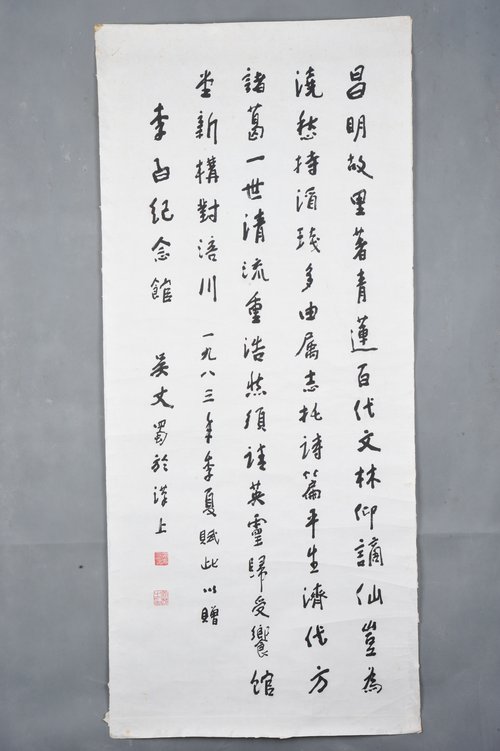 昌明故里著青蓮百代文林仰謫仙豈為
澆愁持酒琖多由属志托詩篇平生濟代方
諸葛一世清流重浩然須請英靈歸受饗館
堂新構對涪川 一九八三年季夏賦此以贈
李白紀念館 吳丈蜀於漢上